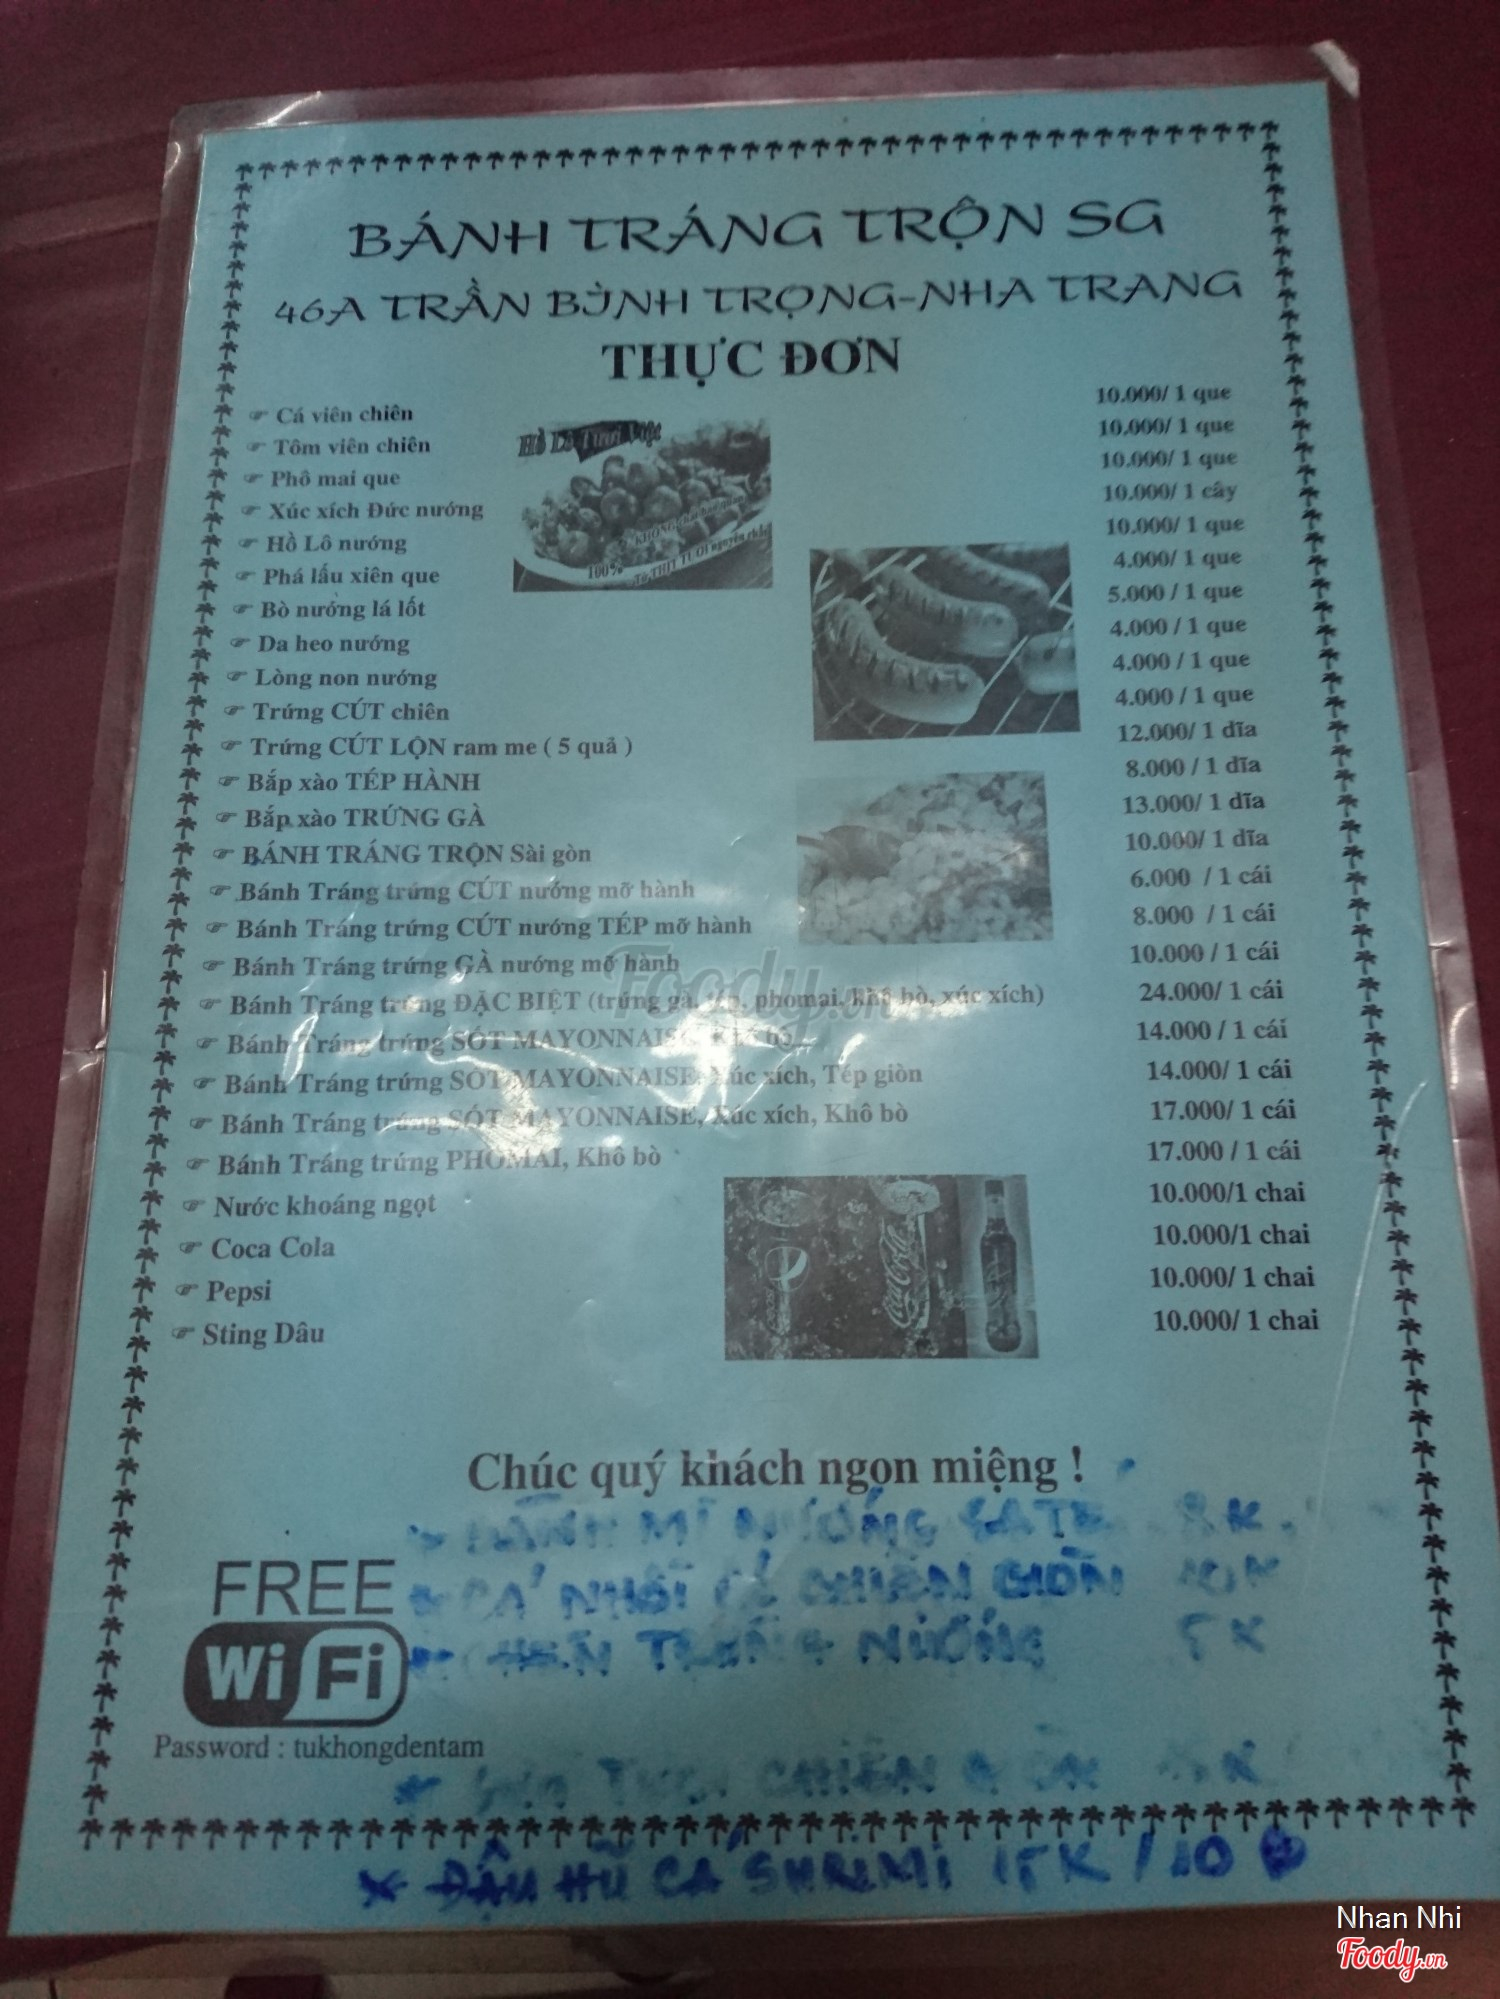 BÁNH TRÁNG TRỘN SG
46A TRẦN BÌNH TRỌNG-NHA TRANG
THỰC ĐƠN
Cá viên chiên 10.000/ 1 que
Tôm viên chiên 10.000/ 1 que
Phô mai que 10.000/ 1 que
Xúc xích Đức nướng 10.000/ 1 cây
Hồ Lô nướng 10.000/ 1 que
Phá lấu xiên que 4.000/ 1 que
Bò nướng lá lốt 5.000 / 1 que
Da heo nướng 4.000 / 1 que
Lòng non nướng 4.000 / 1 que
Trứng CÚT chiên 4.000 / 1 que
Trứng CÚT LỘN ram me ( 5 quả ) 12.000/ 1 dĩa
Bắp xào TÉP HÀNH 8.000 / 1 dĩa
Bắp xào TRỨNG GÀ 13.000/ 1 dĩa
BÁNH TRÁNG TRỘN Sài gòn 10.000/ 1 dĩa
Bánh Tráng trứng CÚT nướng mỡ hành 6.000 / 1 cái
Bánh Tráng trứng CÚT nướng TÉP mỡ hành 8.000 / 1 cái
Bánh Tráng trứng GÀ nướng mỡ hành 10.000 / 1 cái
Bánh Tráng trứng ĐẶC BIỆT (trứng gà, tép, phomai, khô bò, xúc xích) 24.000/ 1 cái
Bánh Tráng trứng SỐT MAYONNAISE, Khô bò 14.000 / 1 cái
Bánh Tráng trứng SỐT MAYONNAISE, Xúc xích, Tép giòn 14.000/ 1 cái
Bánh Tráng trứng SỐT MAYONNAISE, Xúc xích, Khô bò 17.000/ 1 cái
Bánh Tráng trứng PHOMAI, Khô bò 17.000 / 1 cái
Nước khoáng ngọt 10.000/1 chai
Coca Cola 10.000/1 chai
Pepsi 10.000/ 1 chai
Sting Dâu 10.000/ 1 chai
Hồ Lô Tươi Việt
100% từ THỊT TƯƠI nguyên chất
Coca-Cola
Foody.vn
Chúc quý khách ngon miệng !
BÁNH MÌ NƯỚNG SATE 8K
CÁ NHỒI CHIÊN GIÒN 10K
TRỨNG NƯỚNG 5K
FREE
WiFi
Password : tukhongdentam
CHIÊN K
ĐẬU HŨ CÁ SHRIMI 15K / 10
Nhan Nhi
Foody.vn